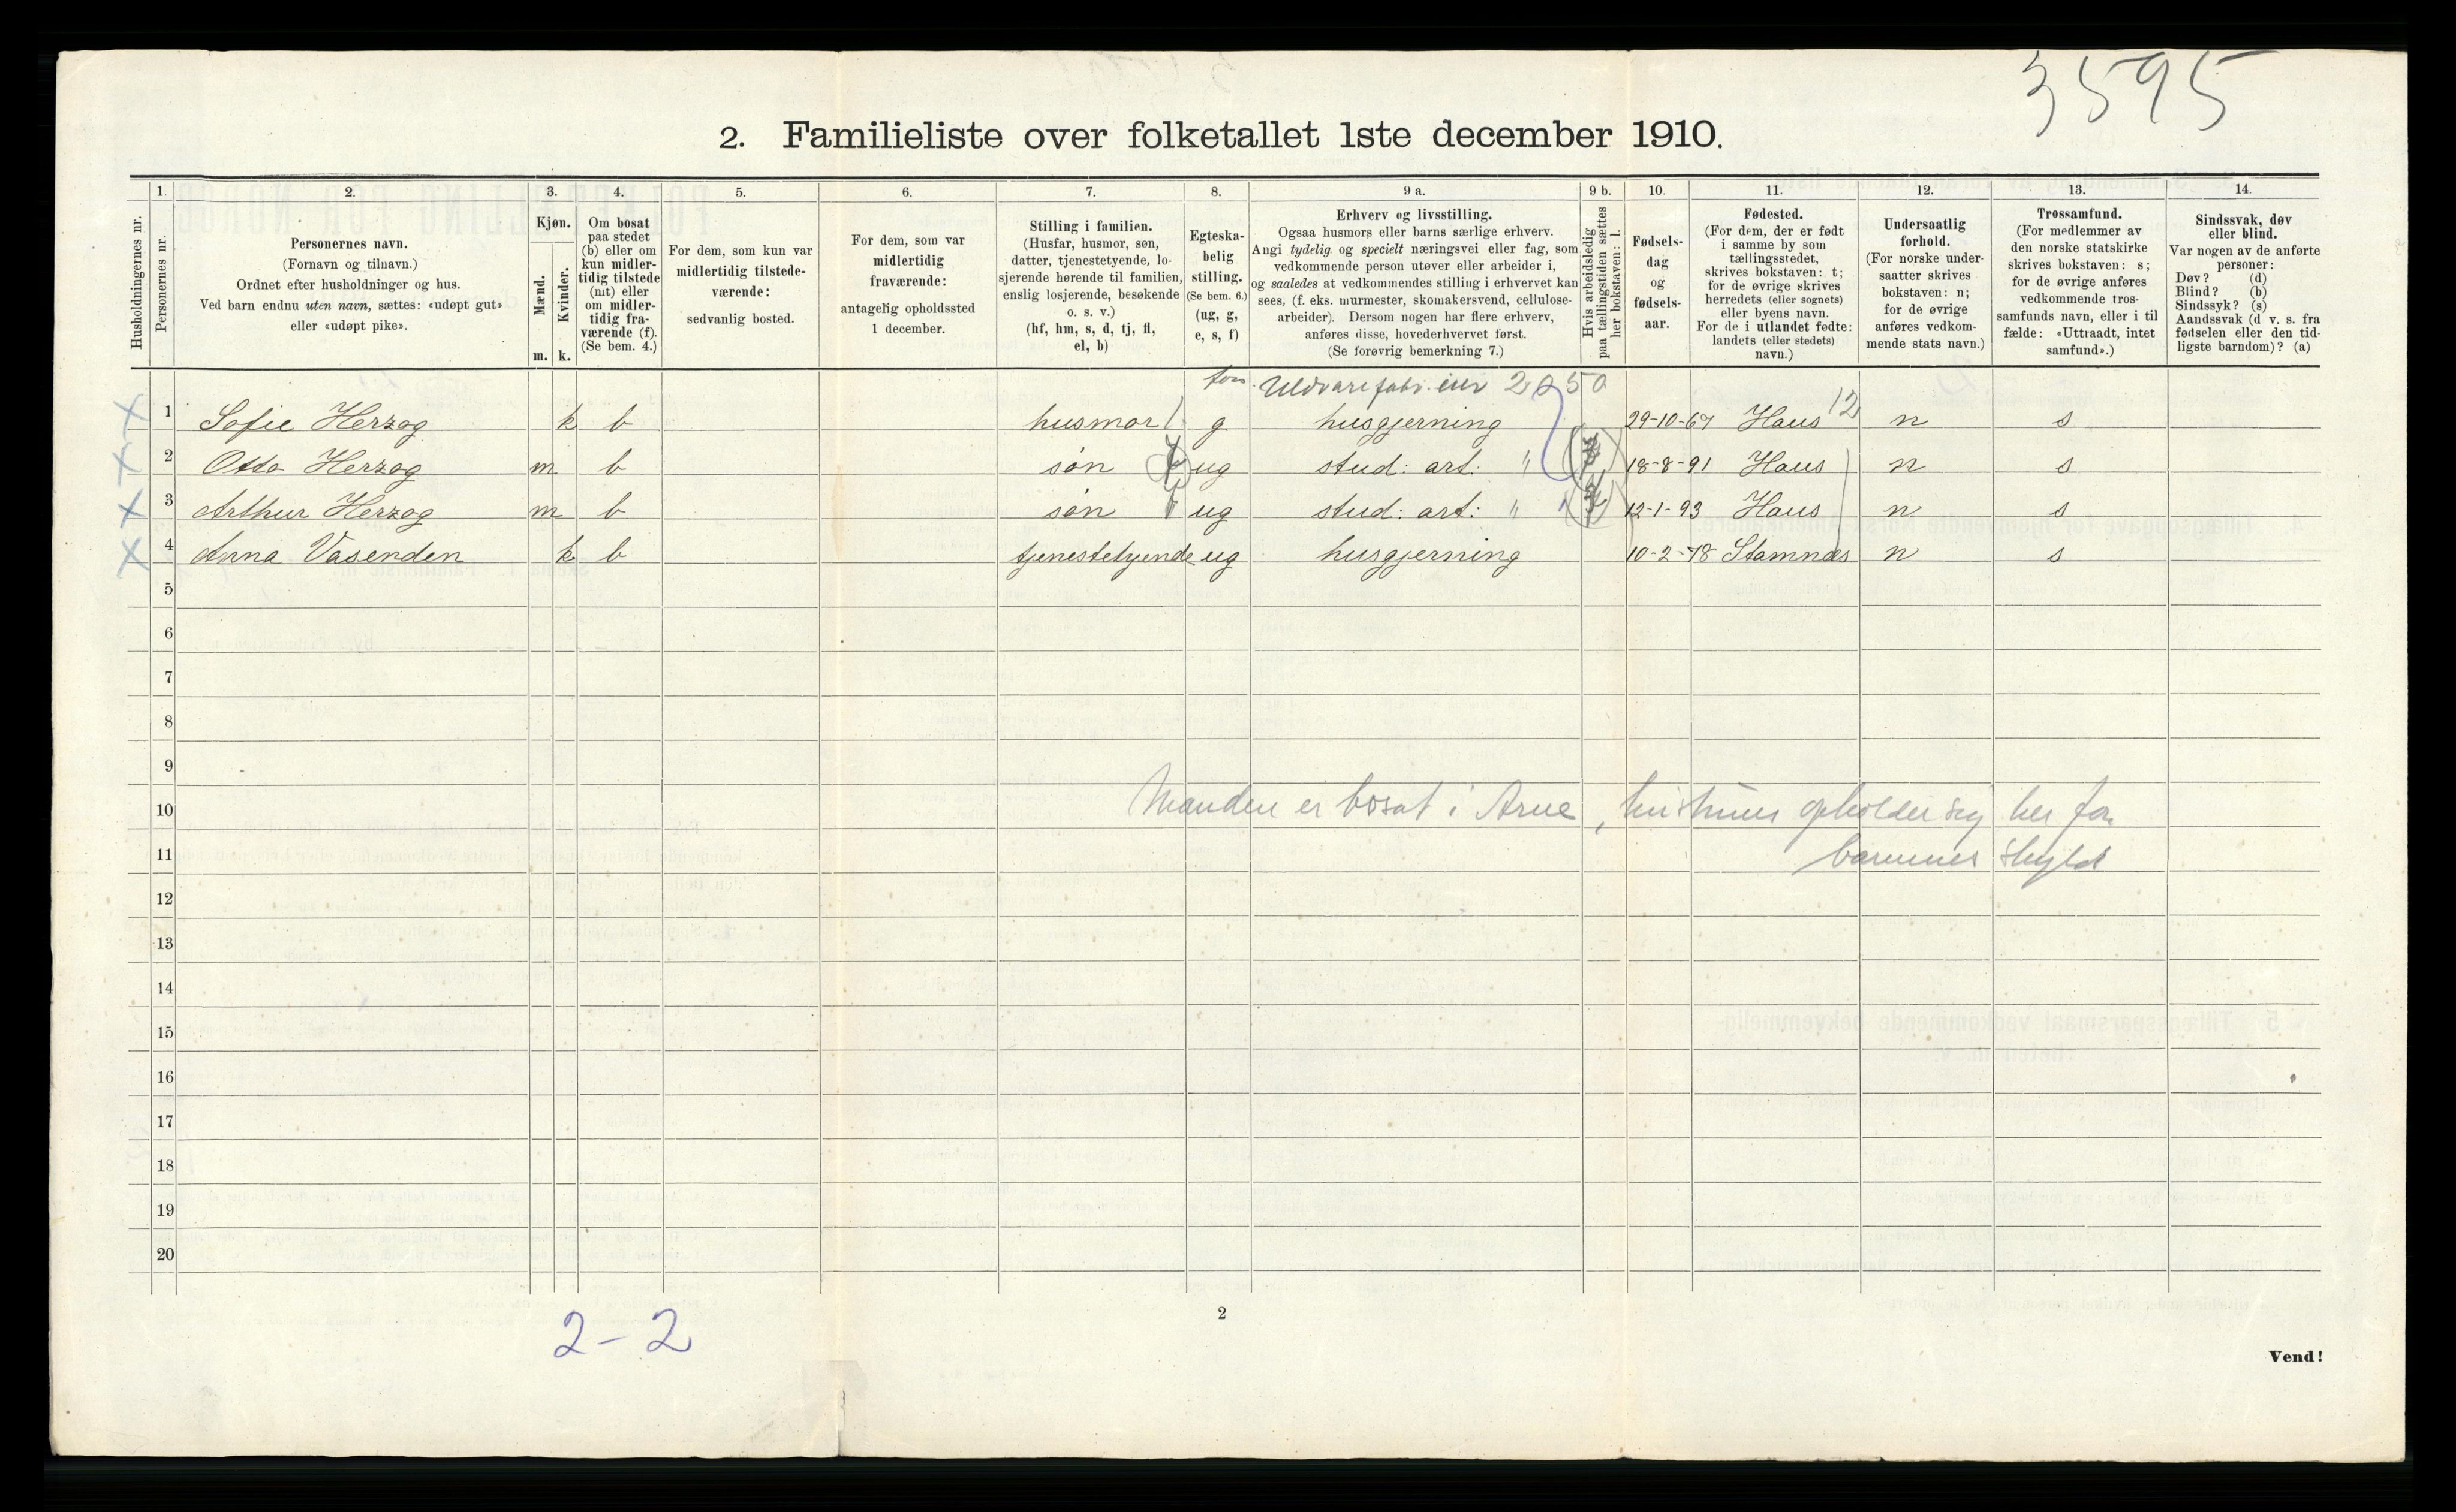 3595
2. Familieliste over folketallet 1ste december 1910.
Husholdningernes nr.
1.
Personernes nr.
2.
Personernes navn.
(Fornavn og tilnavn.)
Ordnet efter husholdninger og hus.
Ved barn endnu uten navn, sættes: «udøpt gut»
eller «udøpt pike».
3.
Kjøn.
Mænd.
Kvinder.
m. k.
4.
Om bosat
paa stedet
(b) eller om
kun midler-
tidig tilstede
(mt) eller
om midler-
tidig fra-
værende (f).
(Se bem. 4.)
5.
For dem, som kun var
midlertidig tilstede-
værende:
sedvanlig bosted.
6.
For dem, som var
midlertidig
fraværende:
antagelig opholdssted
1 december.
7.
Stilling i familien.
(Husfar, husmor, søn,
datter, tjenestetyende, lo-
sjerende hørende til familien,
enslig losjerende, besøkende
o. s. v.)
(hf, hm, s, d, tj, fl,
el, b)
8.
Egteska-
belig
stilling.
(Se bem. 6.)
(ug, g,
e, s, f)
9 a.
Erhverv og livsstilling.
Ogsaa husmors eller barns særlige erhverv.
Angi tydelig og specielt næringsvei eller fag, som
vedkommende person utøver eller arbeider i,
og saaledes at vedkommendes stilling i erhvervet kan
sees, (f. eks. murmester, skomakersvend, cellulose-
arbeider). Dersom nogen har flere erhverv,
anføres disse, hovederhvervet først.
(Se forøvrig bemerkning 7.)
9 b.
Hvis arbeidsledig
paa tællingstiden sættes
her bokstaven: l.
10.
Fødsels-
dag
og
fødsels-
aar.
11.
Fødested.
(For dem, der er født
i samme by som
tællingsstedet,
skrives bokstaven: t;
for de øvrige skrives
herredets (eller sognets)
eller byens navn.
For de i utlandet fødte:
landets (eller stedets)
navn.)
12.
Undersaatlig
forhold.
(For norske under-
saatter skrives
bokstaven: n;
for de øvrige
anføres vedkom-
mende stats navn.)
13.
Trossamfund.
(For medlemmer av
den norske statskirke
skrives bokstaven: s;
for de øvrige anføres
vedkommende tros-
samfunds navn, eller i til
fælde: «Uttraadt, intet
samfund».)
14.
Sindssvak, døv
eller blind.
Var nogen av de anførte
personer:
Døv? (d)
Blind? (b)
Sindssyk? (s)
Aandssvak (d v. s. fra
fødselen eller den tid-
ligste barndom)? (a)
Uldvarefabr. eier 2050
1 Sofie Herzog k b husmor g husgjerning 29-10-67 Haus 12 n s
2 Otto Herzog m b søn ug stud: art: " 18-8-91 Haus n s
3 Arthur Herzog m b søn ug stud: art: " 12-1-93 Haus n s
4 Anna Vasenden k b tjenestetyende ug husgjerning 10-2-78 Stamnæs n s
5
6
7
8
9
10 Manden er bosat i Arne, hustruen opholder sig her for
11 barnenes skyld
12
13
14
15
16
17
18
19
20
2-2
2
Vend!